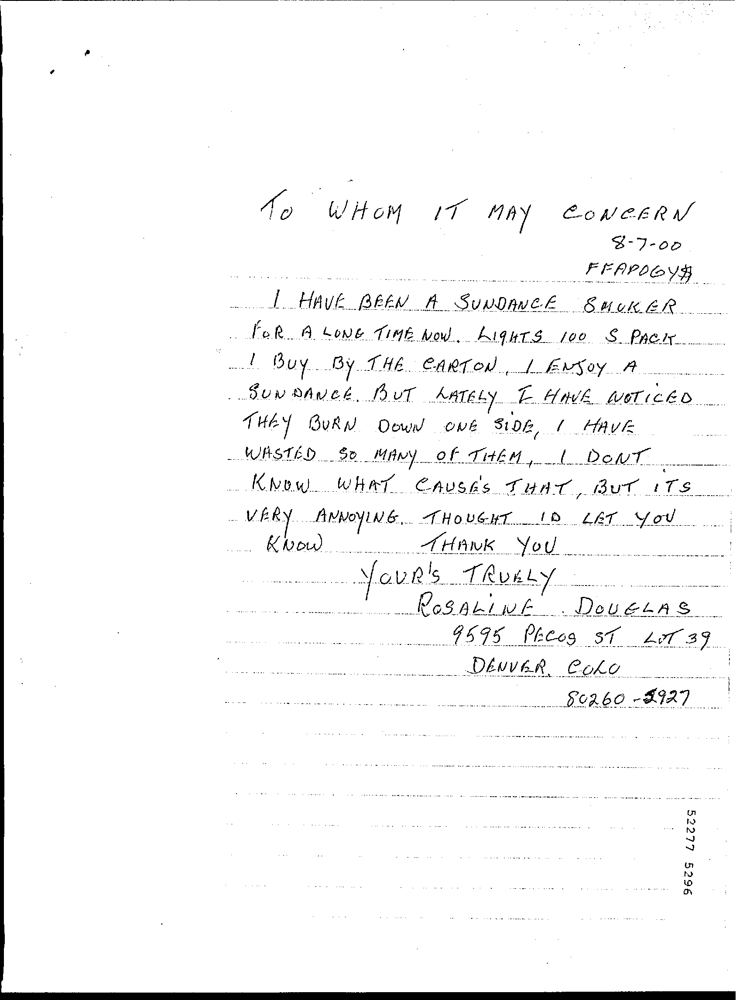 TO WHOM IT MAY CONCERN
8-7-00
I HAVE BEEN A SUNDANCE SMOKER
FOR A LONG TIME NOW. LIGHTS 100 S PACK
I BUY BY THE CARTON, I ENJOY A
SUNDANCE. BUT LATELY I HAVE NOTICED
THEY BURN DOWN ONE SIDE, I HAVE
WASTED SO MANY OF THEM, I DONT
KNOW WHAT CAUSE'S THAT, BUT ITS
VERY ANNOYING. THOUGHT ID LET YOU
KNOW THANK YOU
YOUR'S TRUELY
ROSALINE DOUGLAS
9595 PECOS ST LOT 39
DENVER, COLO
80260-
52277 5296